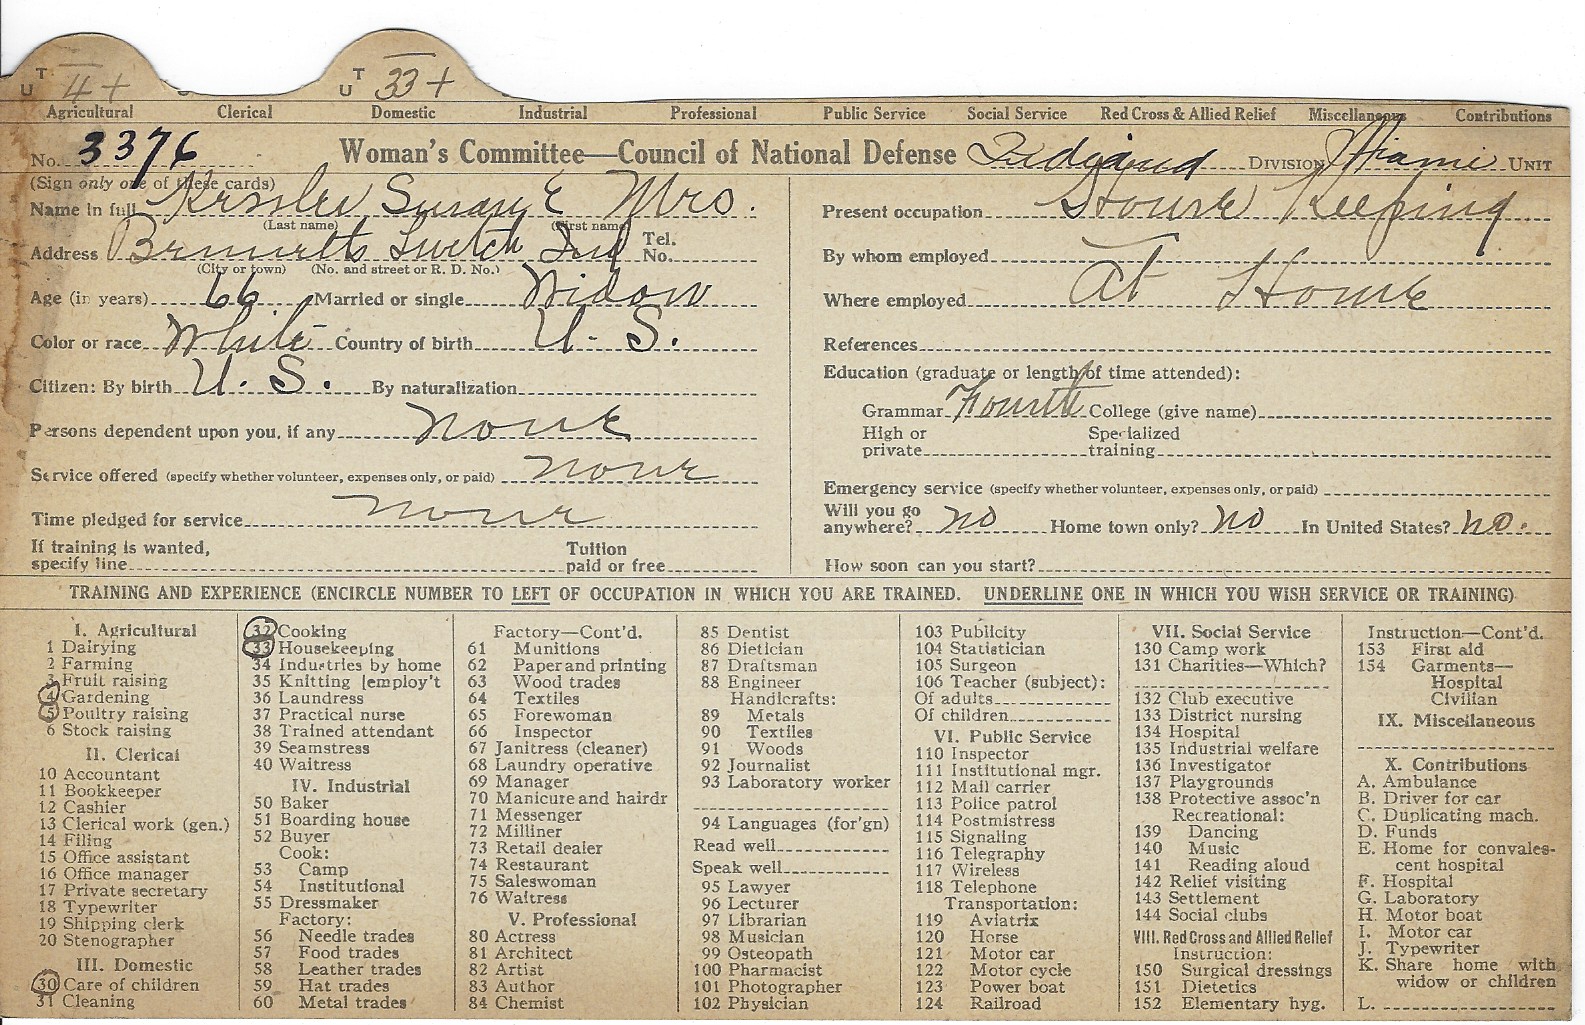 T U 4+
T U 33+
Agricultural Clerical Domestic Industrial Professional Public Service Social Service Red Cross & Allied Relief Miscellaneous Contributions
No. 3376 Woman's Committee—Council of National Defense DIVISION Miami UNIT
(Sign only one of these cards)
Name in full Susan E Mrs.
(Last name) (First name)
Address Switch Ind Tel. No.
(City or town) (No. and street or R. D. No.)
Age (in years) 66 Married or single Widow
Color or race White Country of birth U. S.
Citizen: By birth U. S. By naturalization
Persons dependent upon you, if any none
Service offered (specify whether volunteer, expenses only, or paid) none
Time pledged for service none
If training is wanted, specify line Tuition paid or free
Present occupation House Keeping
By whom employed
Where employed At Home
References
Education (graduate or length of time attended):
Grammar Fourth College (give name)
High or private Specialized training
Emergency service (specify whether volunteer, expenses only, or paid)
Will you go anywhere? no Home town only? no In United States? no.
How soon can you start?
TRAINING AND EXPERIENCE (ENCIRCLE NUMBER TO LEFT OF OCCUPATION IN WHICH YOU ARE TRAINED. UNDERLINE ONE IN WHICH YOU WISH SERVICE OR TRAINING)
I. Agricultural
1 Dairying
2 Farming
3 Fruit raising
4 Gardening
5 Poultry raising
6 Stock raising
II. Clerical
10 Accountant
11 Bookkeeper
12 Cashier
13 Clerical work (gen.)
14 Filing
15 Office assistant
16 Office manager
17 Private secretary
18 Typewriter
19 Shipping clerk
20 Stenographer
III. Domestic
30 Care of children
31 Cleaning
32 Cooking
33 Housekeeping
34 Industries by home
35 Knitting [employ't
36 Laundress
37 Practical nurse
38 Trained attendant
39 Seamstress
40 Waitress
IV. Industrial
50 Baker
51 Boarding house
52 Buyer
Cook:
53 Camp
54 Institutional
55 Dressmaker
Factory:
56 Needle trades
57 Food trades
58 Leather trades
59 Hat trades
60 Metal trades
Factory—Cont'd.
61 Munitions
62 Paper and printing
63 Wood trades
64 Textiles
65 Forewoman
66 Inspector
67 Janitress (cleaner)
68 Laundry operative
69 Manager
70 Manicure and hairdr
71 Messenger
72 Milliner
73 Retail dealer
74 Restaurant
75 Saleswoman
76 Waitress
V. Professional
80 Actress
81 Architect
82 Artist
83 Author
84 Chemist
85 Dentist
86 Dietician
87 Draftsman
88 Engineer
Handicrafts:
89 Metals
90 Textiles
91 Woods
92 Journalist
93 Laboratory worker
94 Languages (for'gn)
Read well
Speak well
95 Lawyer
96 Lecturer
97 Librarian
98 Musician
99 Osteopath
100 Pharmacist
101 Photographer
102 Physician
103 Publicity
104 Statistician
105 Surgeon
106 Teacher (subject):
Of adults
Of children
VI. Public Service
110 Inspector
111 Institutional mgr.
112 Mail carrier
113 Police patrol
114 Postmistress
115 Signaling
116 Telegraphy
117 Wireless
118 Telephone
Transportation:
119 Aviatrix
120 Horse
121 Motor car
122 Motor cycle
123 Power boat
124 Railroad
VII. Social Service
130 Camp work
131 Charities—Which?
132 Club executive
133 District nursing
134 Hospital
135 Industrial welfare
136 Investigator
137 Playgrounds
138 Protective assoc'n
Recreational:
139 Dancing
140 Music
141 Reading aloud
142 Relief visiting
143 Settlement
144 Social clubs
VIII. Red Cross and Allied Relief
Instruction:
150 Surgical dressings
151 Dietetics
152 Elementary hyg.
Instruction—Cont'd.
153 First aid
154 Garments—
Hospital
Civilian
IX. Miscellaneous
X. Contributions
A. Ambulance
B. Driver for car
C. Duplicating mach.
D. Funds
E. Home for convales-
cent hospital
F. Hospital
G. Laboratory
H. Motor boat
I. Motor car
J. Typewriter
K. Share home with
widow or children
L.